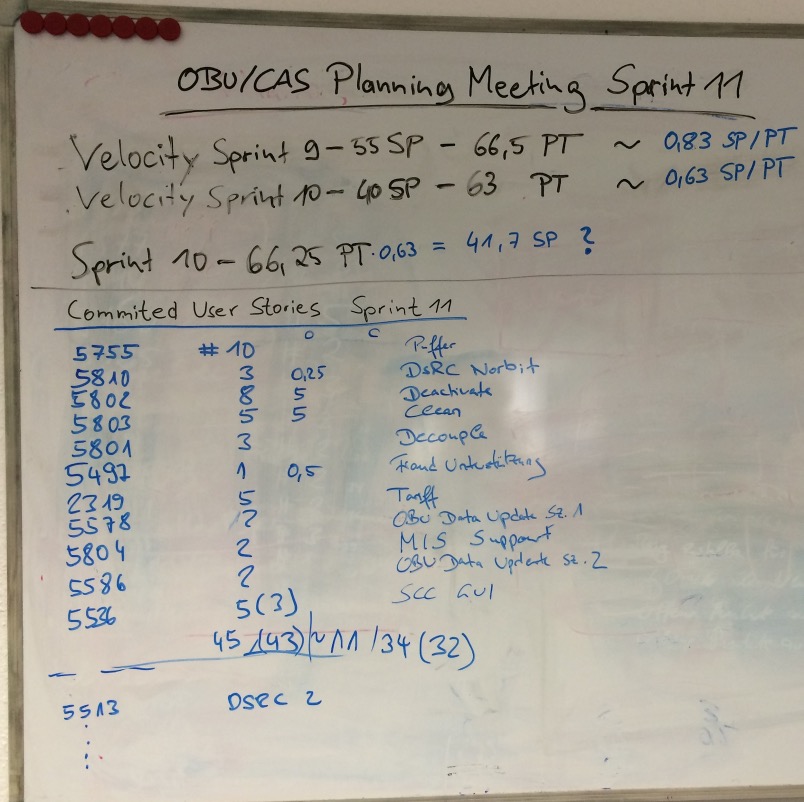 OBU/CAS Planning Meeting Sprint 11
Velocity Sprint 9 – 55 SP – 66,5 PT ~ 0,83 SP/PT
Velocity Sprint 10 – 40 SP – 63 PT ~ 0,63 SP/PT
Sprint 10 – 66,25 PT · 0,63 = 41,7 SP ?
Commited User Stories Sprint 11
O C
5755 # 10 Puffer
5810 3 0,25 DsRC Norbit
5802 8 5 Deactivate
5803 5 5 Clean
5801 3 Decouple
5497 1 0,5 Fraud Unterstützung
2319 5 Tariff
5578 2 OBU Data Update Sz. 1
5804 2 MIS Support
5586 2 OBU Data Update Sz. 2
5536 5 (3) SCC GUI
45 (43) ~ 11 / 34 (32)
5513 DSRC 2